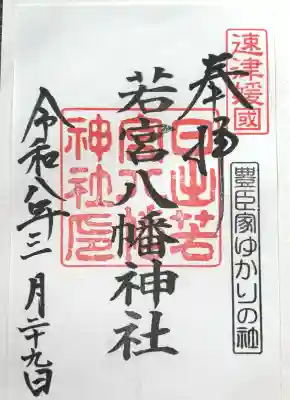 速津媛國
豊臣家ゆかりの社
奉拝
日出若
宮八幡
神社印
若宮八幡神社
令和八年三月二十九日